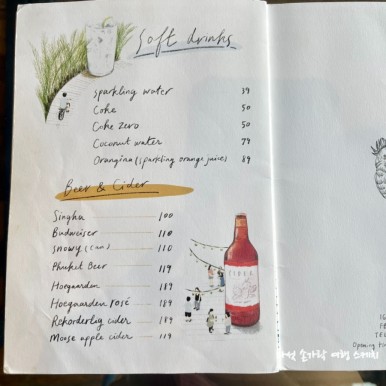 Soft drinks
Sparkling water 39
Coke 50
Coke zero 50
Coconut water 79
Orangina (sparkling orange juice) 89
Beer & Cider
Singha 100
Budweiser 110
Snowy (can) 110
Phuket Beer 119
Hoegaarden 189
Hoegaarden rosé 189
Rekorderlig cider 189
Moose apple cider 119
CIDER
손가락 여행 스케치
Opening